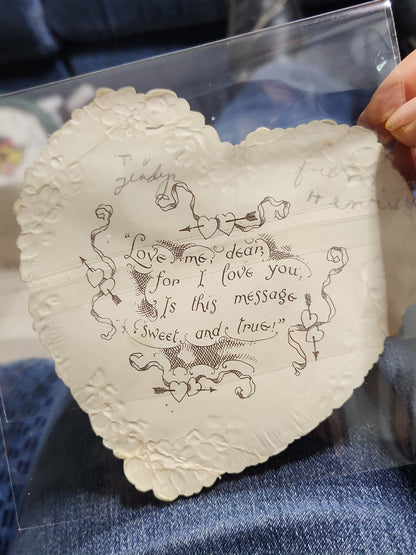 To
from
"Love me, dear,
for I love you,
Is this message
sweet, and true!"